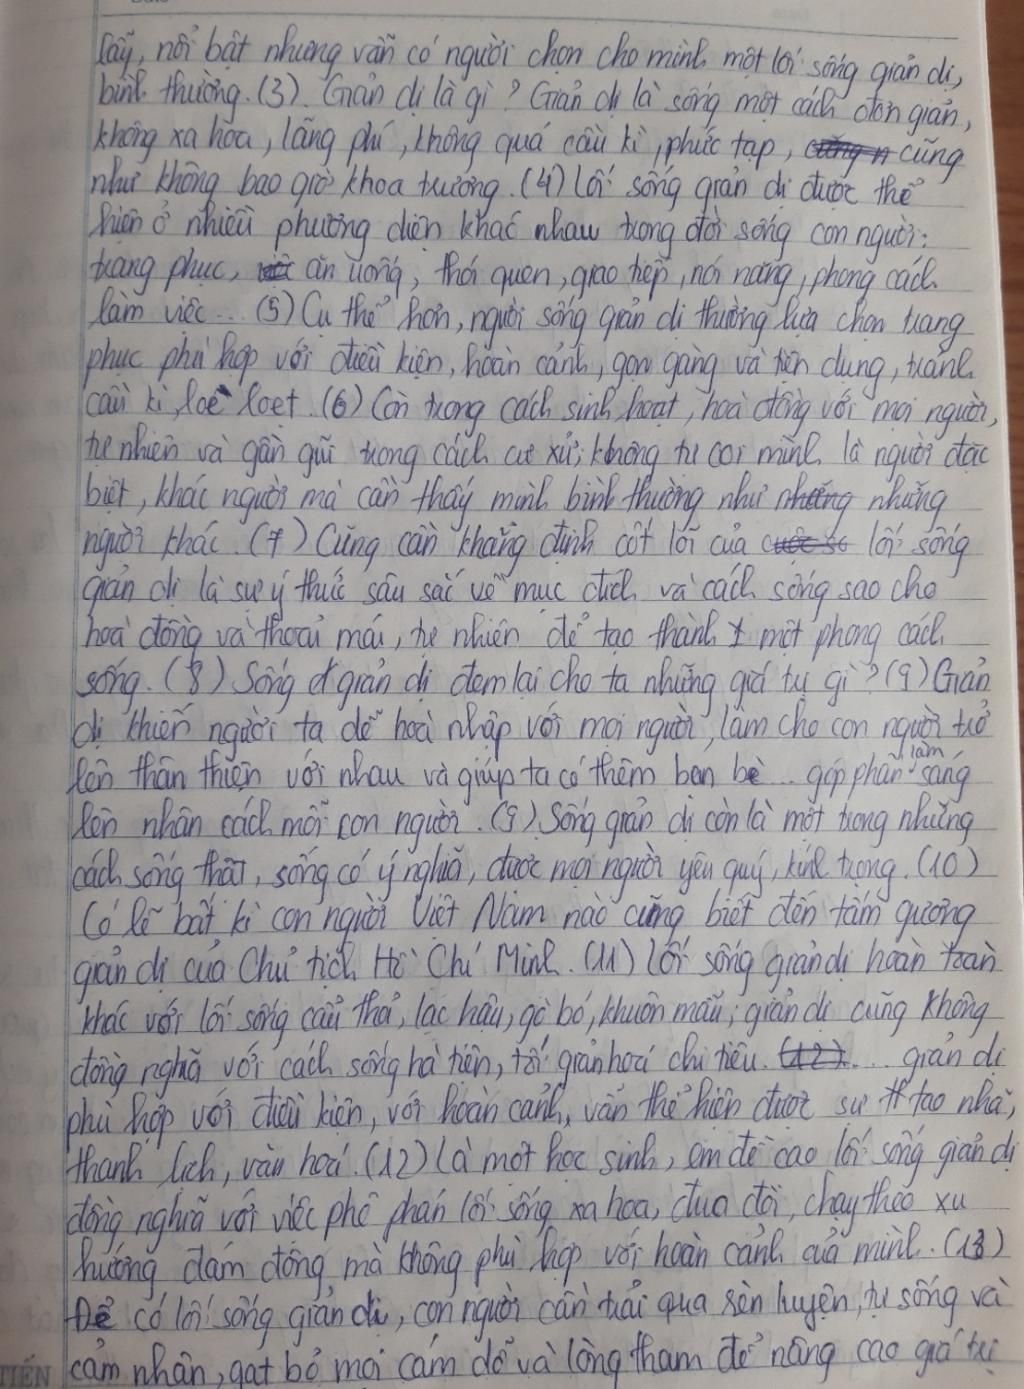 lẫy, nổi bật nhưng vẫn có người chọn cho mình một lối sống giản dị,
bình thường. (3). Giản dị là gì? Giản dị là sống một cách đơn giản,
không xa hoa, lãng phí, không quá cầu kì, phức tạp, cũng n cũng
như không bao giờ khoa trương. (4) Lối sống giản dị được thể
hiện ở nhiều phương diện khác nhau trong đời sống con người:
trang phục, ăn uống, thói quen, giao tiếp, nói năng, phong cách
làm việc... (5) Cụ thể hơn, người sống giản dị thường lựa chọn trang
phục phù hợp với điều kiện, hoàn cảnh, gọn gàng và tiện dụng, tránh
cầu kì, loè loẹt. (6) Còn trong cách sinh hoạt, hoà đồng với mọi người,
tự nhiên và gần gũi trong cách cư xử; không tự coi mình là người đặc
biệt, khác người mà cần thấy mình bình thường như những những
người khác. (7) Cũng cần khẳng định cốt lõi của cuộc số lối sống
giản dị là sự ý thức sâu sắc về mục đích và cách sống sao cho
hoà đồng và thoải mái, tự nhiên để tạo thành 1 một phong cách
sống. (8) Sống giản dị đem lại cho ta những giá tụ gì? (9) Giản
dị khiến người ta dễ hoà nhập với mọi người, làm cho con người trở
lên thân thiện với nhau và giúp ta có thêm bạn bè... góp phần làm sáng
lên nhân cách mỗi con người. (9) Sống giản dị còn là một trong những
cách sống thật, sống có ý nghĩa, được mọi người yêu quý, kính trọng. (10)
Có lẽ bất kì con người Việt Nam nào cũng biết đến tấm gương
giản dị của Chủ tịch Hồ Chí Minh. (11) Lối sống giản dị hoàn toàn
khác với lối sống cẩu thả, lạc hậu, gò bó, khuôn mẫu; giản dị cũng không
đồng nghĩa với cách sống hà tiện, tối giản hoá chi tiêu. (12)... giản dị
phù hợp với điều kiện, với hoàn cảnh, vẫn thể hiện được sự tao nhã,
thanh lịch, văn hoá. (12) Là một học sinh, em đề cao lối sống giản dị
đồng nghĩa với việc phê phán lối sống xa hoa, đua đòi, chạy theo xu
hướng đám đông mà không phù hợp với hoàn cảnh của mình. (13)
Để có lối sống giản dị, con người cần trải qua rèn luyện, tự sống và
TIẾN cảm nhận, gạt bỏ mọi cám dỗ và lòng tham để nâng cao giá trị